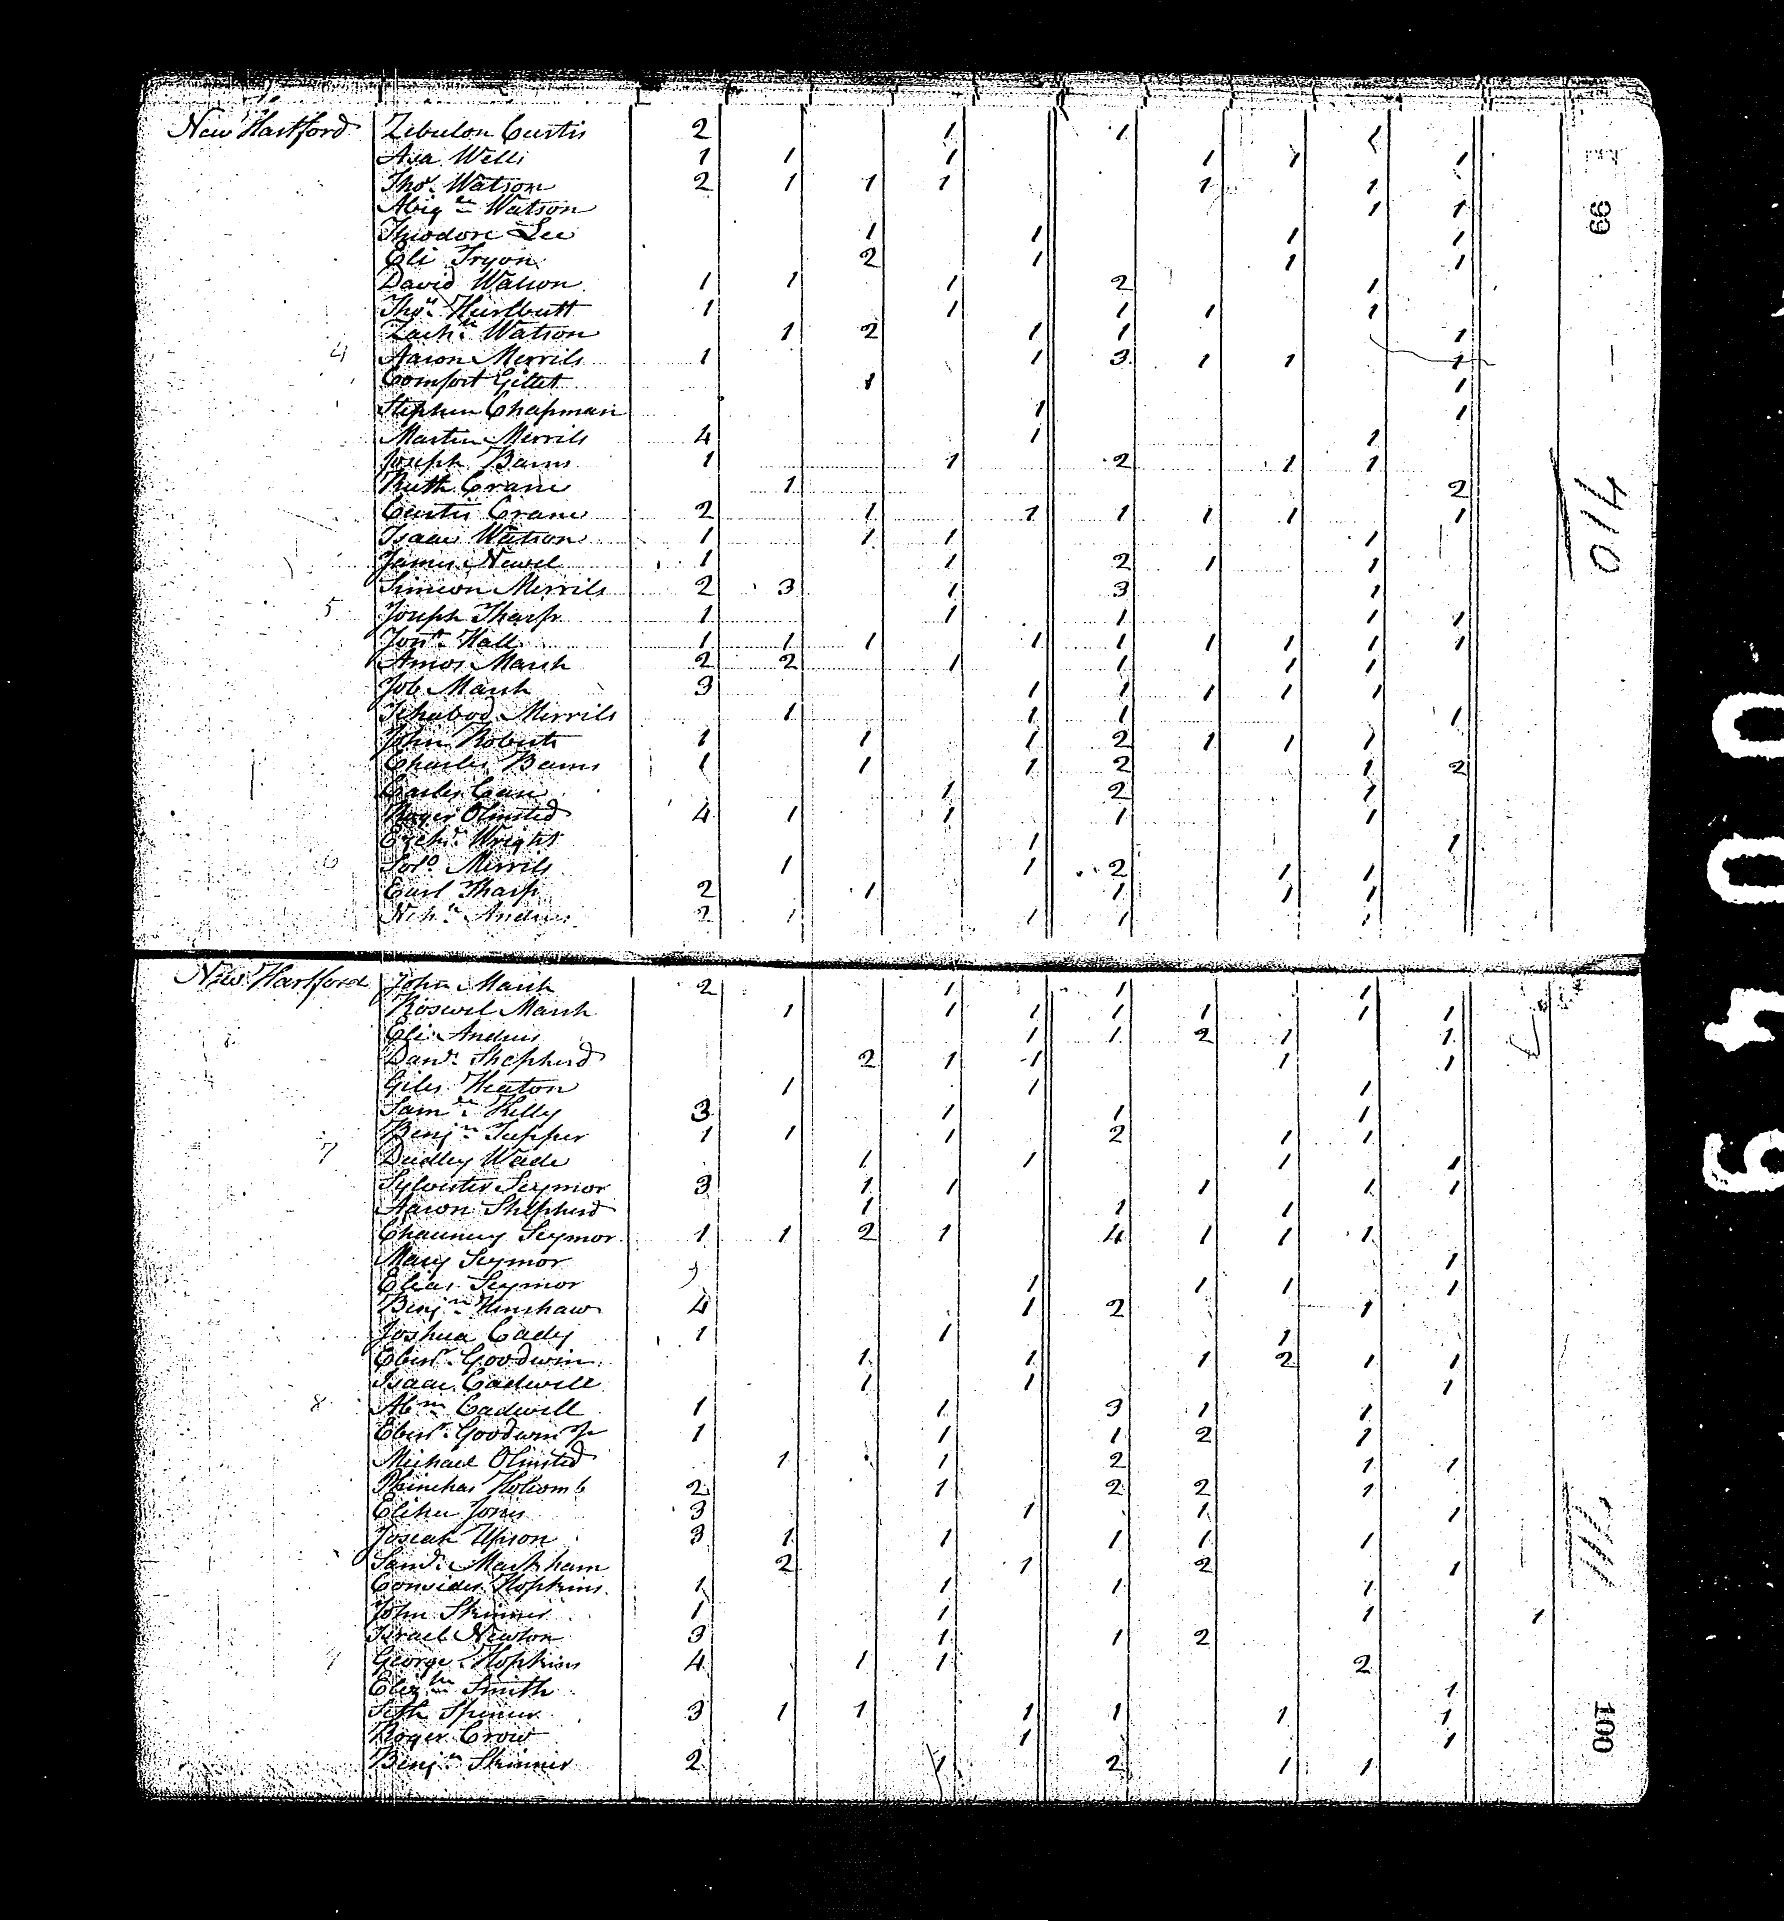 New Hartford Zebulon Curtis 2 1 1 1
Asa Wells 1 1 1 1 1 1
Thos. Watson 2 1 1 1 1 1
Abigll Watson 1 1
Theodore Lee 1 1 1 1
Eli Tryon 2 1 1 1
David Watson 1 1 1 2 1
Thos. Hurlbutt 1 1 1 1 1
Zachh. Watson 1 2 1 1 1
4 Aaron Merrils 1 1 3 1 1 1
Comfort Gillet 1 1
Stephen Chapman 1 1
Martin Merrils 4 1 1
Joseph Barns 1 1 2 1 1
Ruth Crane 1 2
Curtis Crane 2 1 1 1 1 1 1
Isaac Watson 1 1 1 1
James Newel 1 1 2 1 1
Simeon Merrils 2 3 1 3 1
5 Joseph Tharp 1 1 1 1 1
Jonn. Hall 1 1 1 1 1 1 1 1 1
Amos Marsh 2 2 1 1 1 1
Job Marsh 3 1 1 1 1 1
Ichabod Merrils 1 1 1 1
John Roberts 1 1 1 2 1 1 1
Charles Barns 1 1 1 2 1 2
1 2 1
Roger Olmsted 4 1 1 1 1
Wright 1 1
6 Solo. Merrils 1 1 2 1 1
Earl Tharp 2 1 1 1 1
Nehh. Andrus 2 1 1 1 1
99
410
New Hartford John Marsh 2 1 1 1
Roswel Marsh 1 1 1 1 1 1 1
Eli Andrus 1 1 2 1 1
Danl. Shepherd 2 1 1 1 1
Giles Heaton 1 1 1
Samll. Kelly 3 1 1 1
7 Benjn. Tupper 1 1 1 2 1 1
Dudley Wade 1 1 1 1
Sylvester Seymor 3 1 1 1 1 1
Aaron Shepherd 1 1 1
Chauncy Seymor 1 1 2 1 4 1 1 1
Mary Seymor 1
Elias Seymor 1 1 1 1
Benjn. Henshaw 4 1 2 1
Joshua Cady 1 1 1
Ebenr. Goodwin 1 1 1 2 1 1
Isaac Cadwell 1 1 1
8 Abm. Cadwell 1 1 3 1 1
Ebenr. Goodwin Jr 1 1 1 2 1
Michael Olmsted 1 1 2 1 1
Phinehas Holcomb 2 1 2 2 1
Elihu Jones 3 1 1 1
Josiah Upson 3 1 1 1 1 1
Saml. Markham 2 1 2 1
Consider Hopkins 1 1 1 1
John Skinner 1 1 1 1
Israel Newton 3 1 1 2
9 George Hopkins 4 1 1 2
Elizth Smith 1
Seth Spencer 3 1 1 1 1 1 1
Roger Crow 1 1
Benjn. Skinner 2 1 2 1 1
411
100